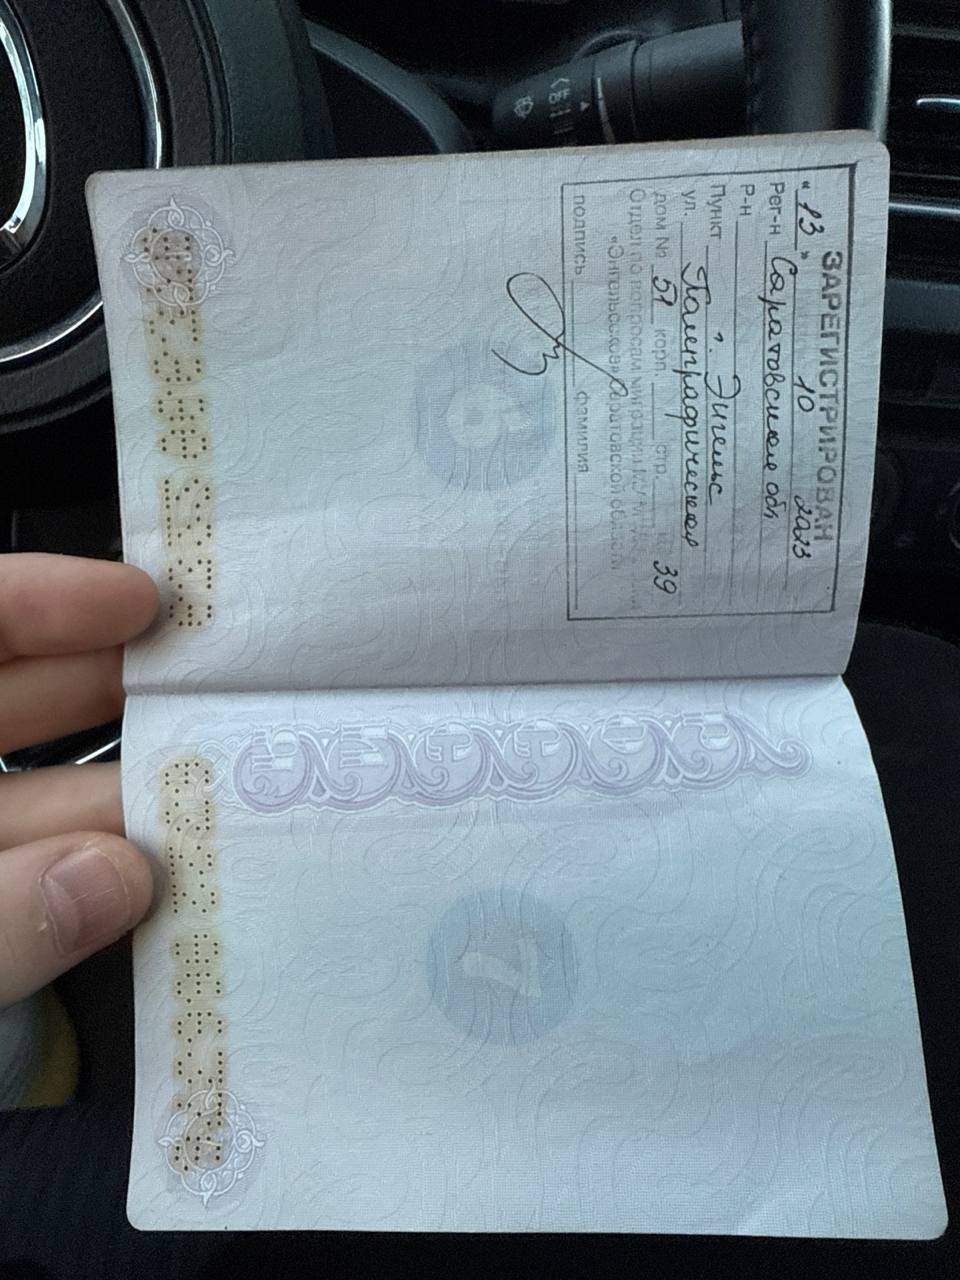 ЗАРЕГИСТРИРОВАН
«13» 10 2023
Рег-н Саратовская обл
Р-н
Пункт г. Энгельс
ул.
дом № 51 корп. стр. кв. 39
Отдел по вопросам миграции МУ МВД
«Энгельсское» Саратовской области
подпись фамилия
6
7
OFF